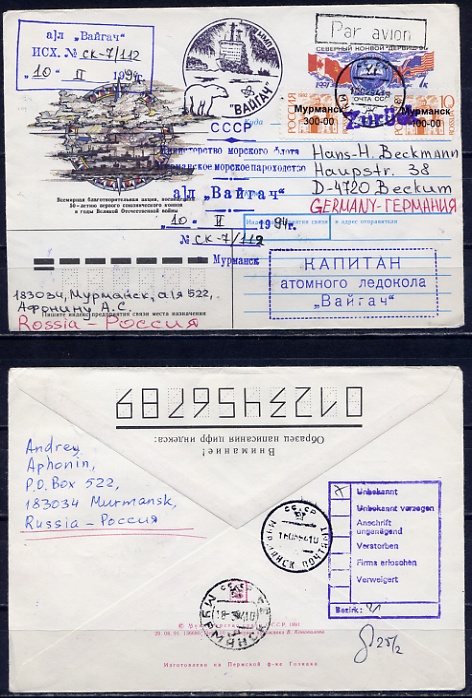 а/л „Вайгач"
ИСХ. № СК-7/112
"10" II 1994г.
ММП
"ВАЙГАЧ"
Par avion
СЕВЕРНЫЙ КОНВОЙ "ДЕРВИШ-91"
ПОЧТА СССР
Мурманск
300-00
РОССИЯ
Мурманск
100-00
10
ROSSIJA
Zurück
Куда
СССР
Министерство морского флота
Мурманское морское пароходство
а/л „Вайгач"
"10" II 1994г.
№ СК-7/112
Мурманск
Hans-H. Beckmann
Haupstr. 38
D-4720 Beckum
GERMANY-ГЕРМАНИЯ
Всемирная благотворительная акция, посвященная
50-летию первого союзнического конвоя
в годы Великой Отечественной войны
и адрес отправителя
КАПИТАН
атомного ледокола
„Вайгач"
183034, Мурманск, а/я 522,
Афонину А.С.
Rossia-Россия
Пишите индекс предприятия связи места назначения
0123456789
Образец написания цифр индекса:
Внимание!
Andrey
Aphonin,
P.O.Box 522,
183034 Murmansk,
Russia-Россия
СССР
МУРМАНСК ПОЧТАМТ
СССР
МУРМАНСК
Unbekannt
Unbekannt verzogen
Anschrift
ungenügend
Verstorben
Firma erloschen
Verweigert
Bezirk:
25/2
Изготовлено на Пермской ф-ке Гознака